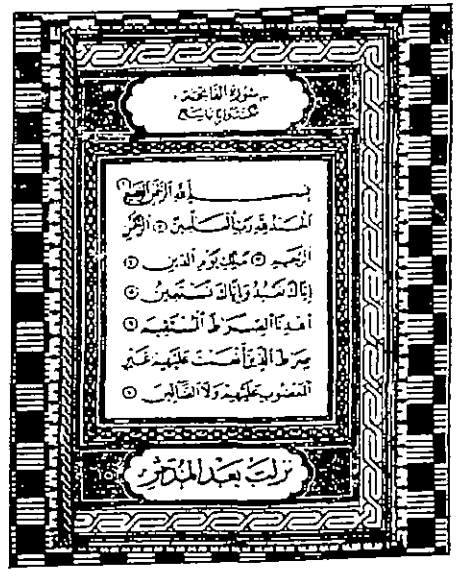 سورة الفاتحة
مكية وآياتها سبع
بسم الله الرحمن الرحيم ١
الحمد لله رب العالمين ٢ الرحمن
الرحيم ٣ ملك يوم الدين ٤
إياك نعبد وإياك نستعين ٥
اهدنا الصراط المستقيم ٦
صراط الذين أنعمت عليهم غير
المغضوب عليهم ولا الضالين ٧
نزلت بعد المدثر